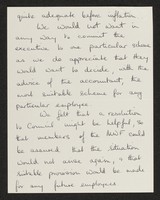 quite adequate before inflation
We would not want in
any way to commit the
executive to one particular scheme
as we do appreciate that they
would want to decide, with the
advice of the accountant, the
most suitable scheme for any
particular employee
We felt that a resolution
to Council might be helpful, so
that members of the MWF could
be assured that the situation
would not arise again, & that
suitable provision would be made
for any future employees